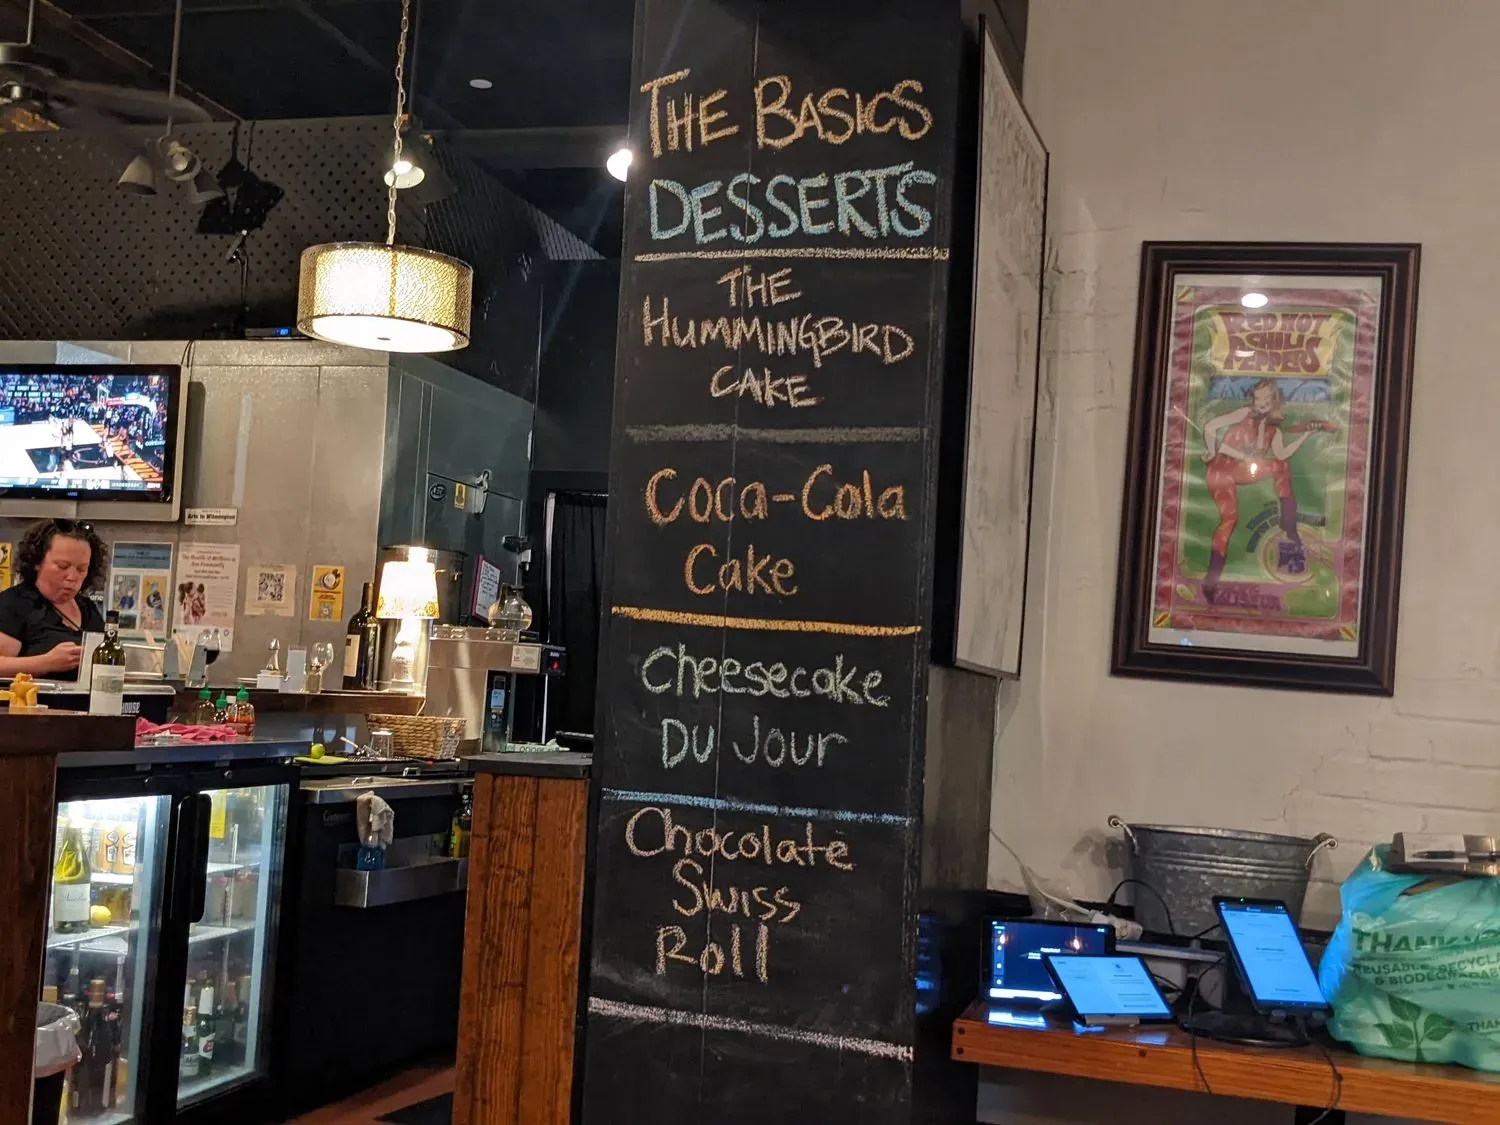 THE BASICS
DESSERTS
THE
HUMMINGBIRD
CAKE
Coca-Cola
Cake
Cheesecake
Du Jour
Chocolate
Swiss
Roll
RED HOT
CHILI
PEPPERS
Arts in Wilmington
THANK YO
REUSABLE, RECYCLA
& BIODEGRA
THAN